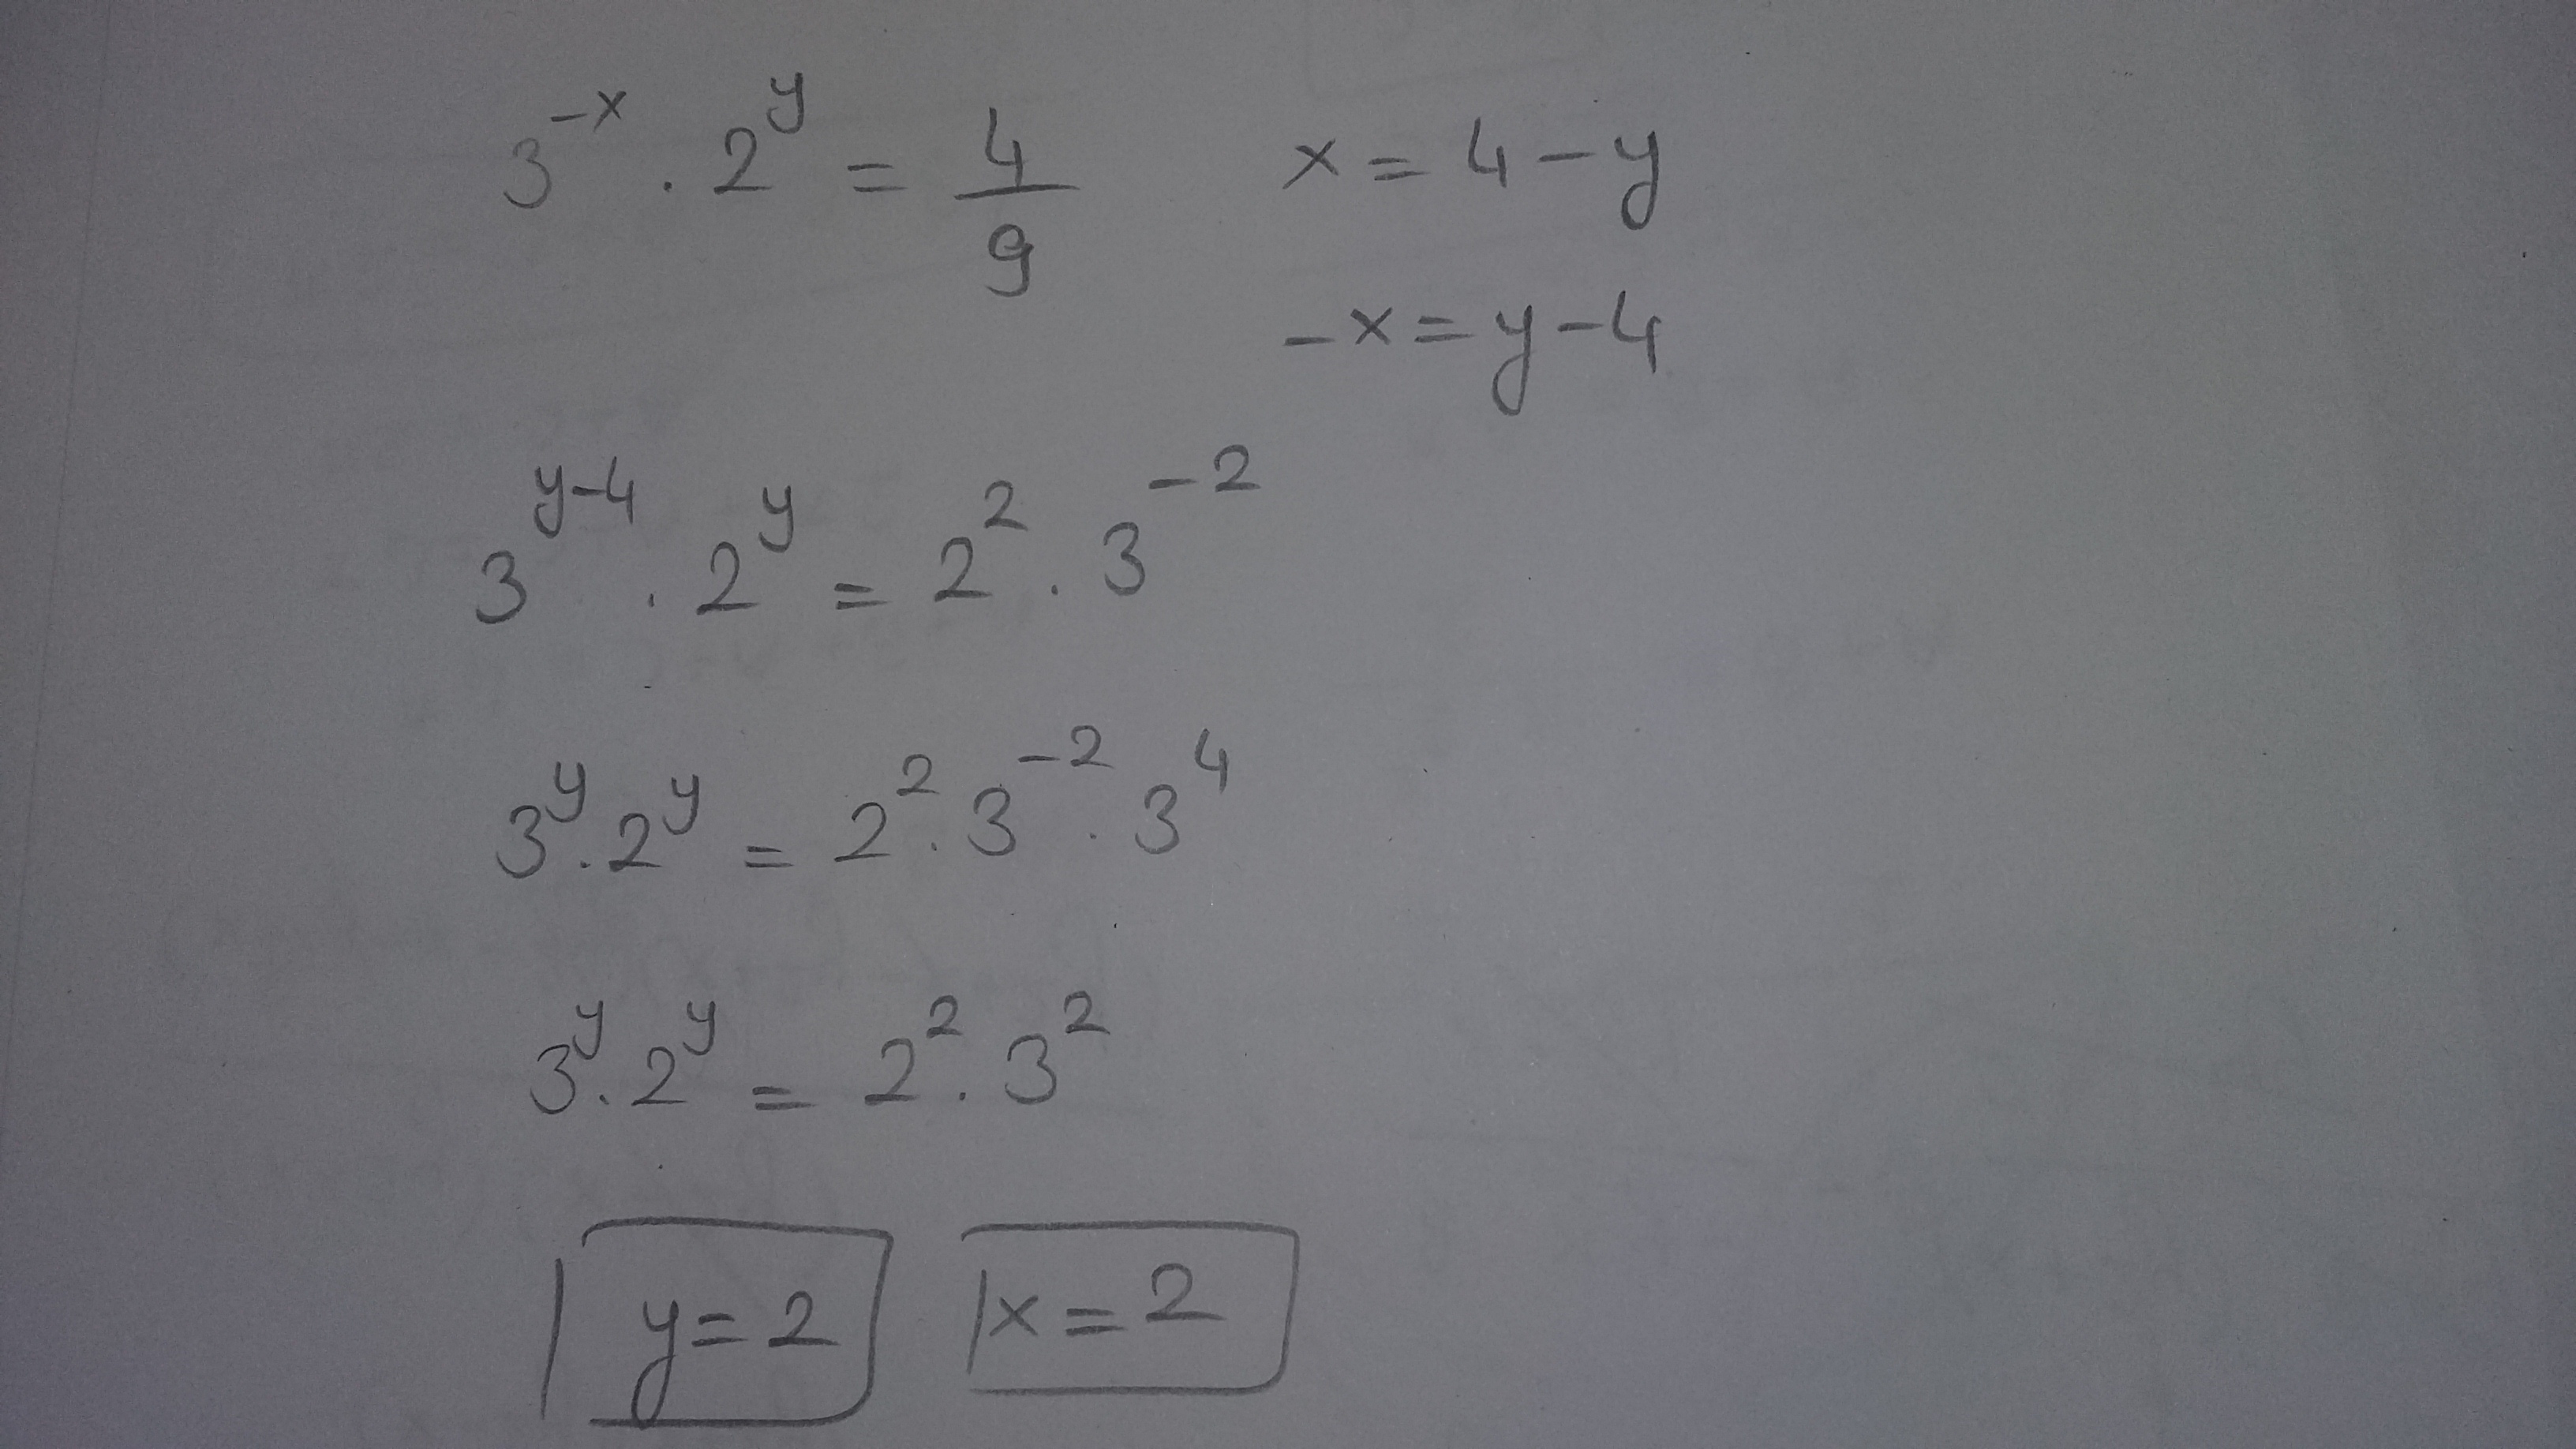 3^{-x} . 2^y = 4/9    x = 4 - y
-x = y - 4
3^{y-4} . 2^y = 2^2 . 3^{-2}
3^y . 2^y = 2^2 . 3^{-2} . 3^4
3^y . 2^y = 2^2 . 3^2
y = 2    x = 2